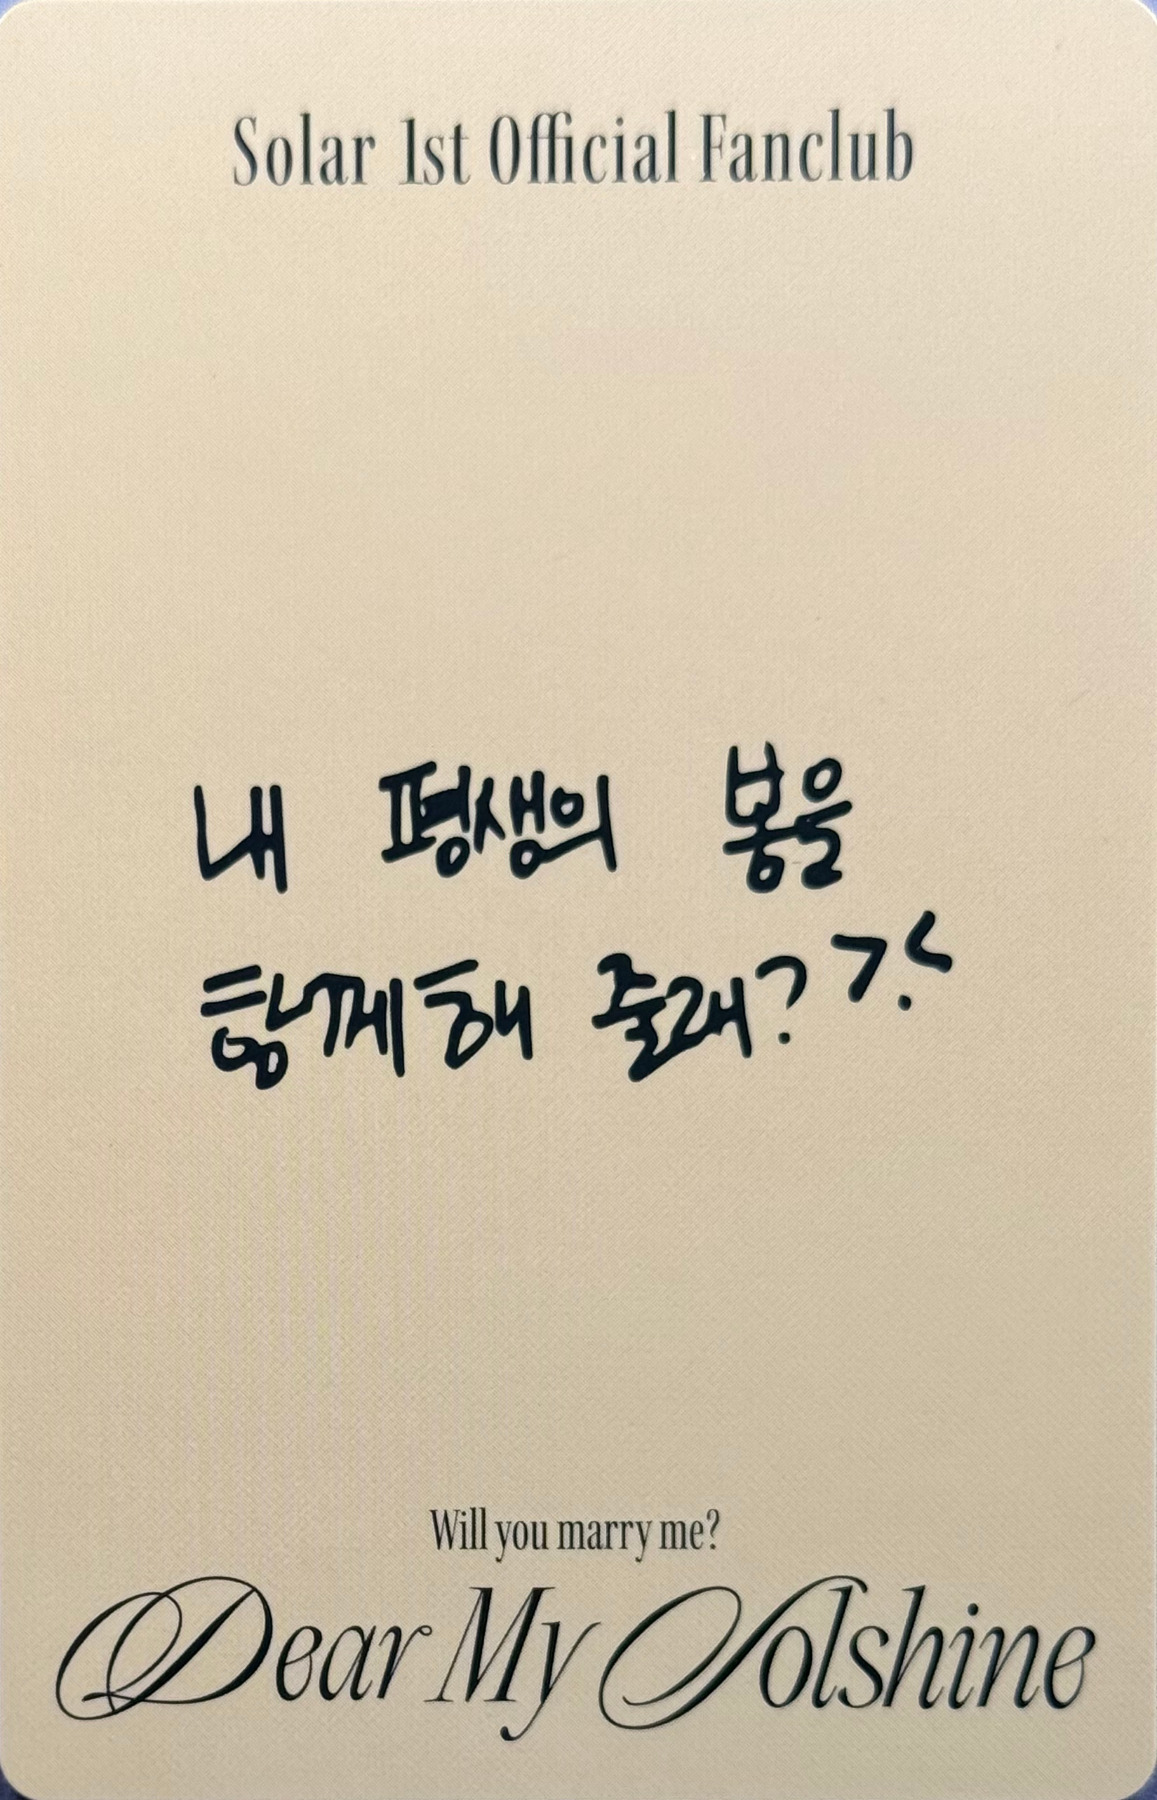 Solar 1st Official Fanclub
내 평생의 봄을
함께해 줄래? >.<
Will you marry me?
Dear My Solshine